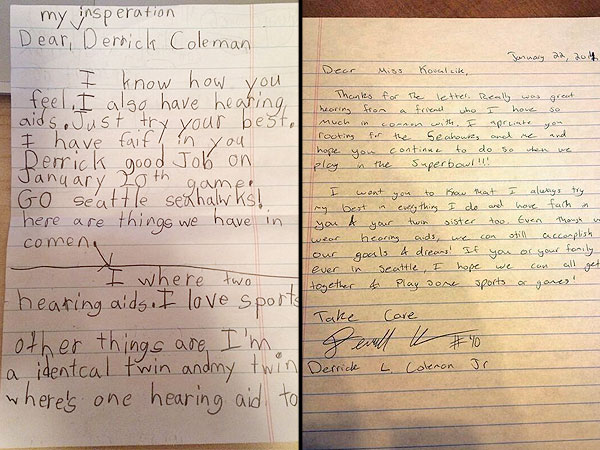 my insperation
Dear, Derrick Coleman
I know how you
feel. I also have hearing
aids. Just try your best.
I have faif in you
Derrick good Job on
January 20th game.
GO seattle seahalwks!
here are things we have in
comen.
I where two
hearing aids. I love sports
other things are, I'm
a identcal twin and my twin
where's one hearing aid to
January 22, 2014
Dear Miss Kovalcik,
Thanks for the letter. Really was great
hearing from a friend who I have so
much in common with. I apriciate you
rooting for the Seahawks and me and
hope you continue to do so when we
play in the Superbowl!!!
I want you to know that I always try
my best in everything I do and have faith in
you & your twin sister too. Even though we
wear hearing aids, we can still accomplish
our goals & dreams! If you or your family
ever in Seattle, I hope we can all get
together & Play some sports or games!
Take Care
#40
Derrick L. Coleman Jr